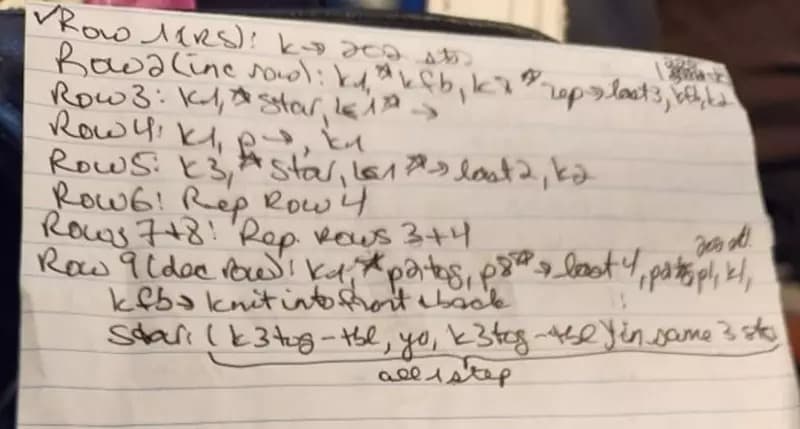 ✓Row 1(RS): K→ 202 sts
Row2(inc row): K1, *kfb, K8* rep→last3, kfb, K2
Row3: K1, *star, K1* →
Row4: K1, P→, K1
Row5: K3, *star, K1*→last2, K2
Row6: Rep Row 4
Rows 7+8: Rep. Rows 3+4
Row 9(dec row): K1, *p2tog, p8*→last4, p2tog, p1, K1,
kfb→ knit into front + back
Star: (K3tog-tbl, yo, K3tog-tbl) in same 3 sts
all 1 step